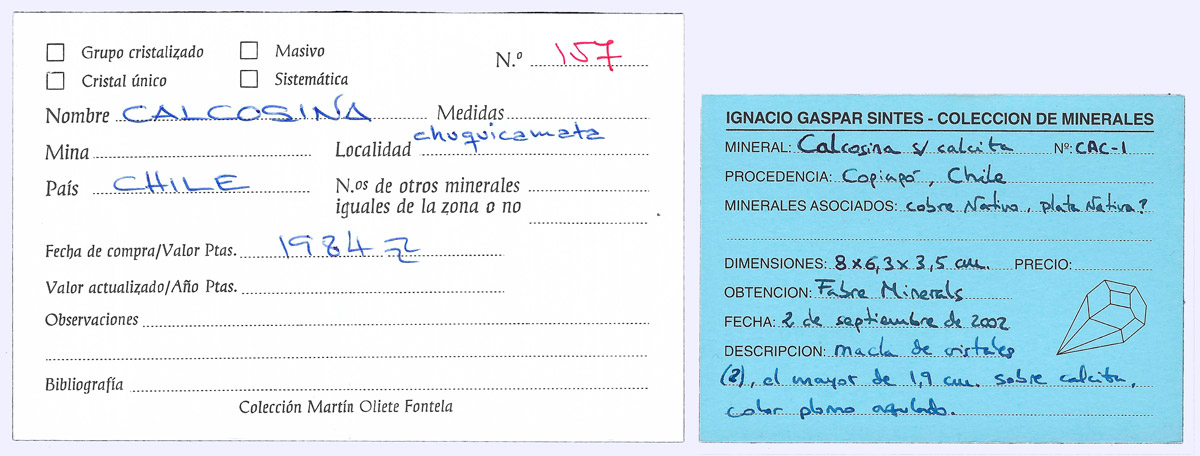 Grupo cristalizado
Masivo
N.º 157
Cristal único
Sistemática
Nombre CALCOSINA
Medidas
Mina
Localidad chuquicamata
País CHILE
N.os de otros minerales
iguales de la zona o no
Fecha de compra/Valor Ptas. 1984
Valor actualizado/Año Ptas.
Observaciones
Bibliografía
Colección Martín Oliete Fontela
IGNACIO GASPAR SINTES - COLECCION DE MINERALES
MINERAL: Calcosina s/ calcita Nº: CAC-1
PROCEDENCIA: Copiapó, Chile
MINERALES ASOCIADOS: cobre Nativo, plata Nativa?
DIMENSIONES: 8x6,3x3,5 cm. PRECIO:
OBTENCION: Fabre Minerals
FECHA: 2 de septiembre de 2002
DESCRIPCION: macla de cristales
(?), el mayor de 1,9 cm. sobre calcita,
color plomo azulado.